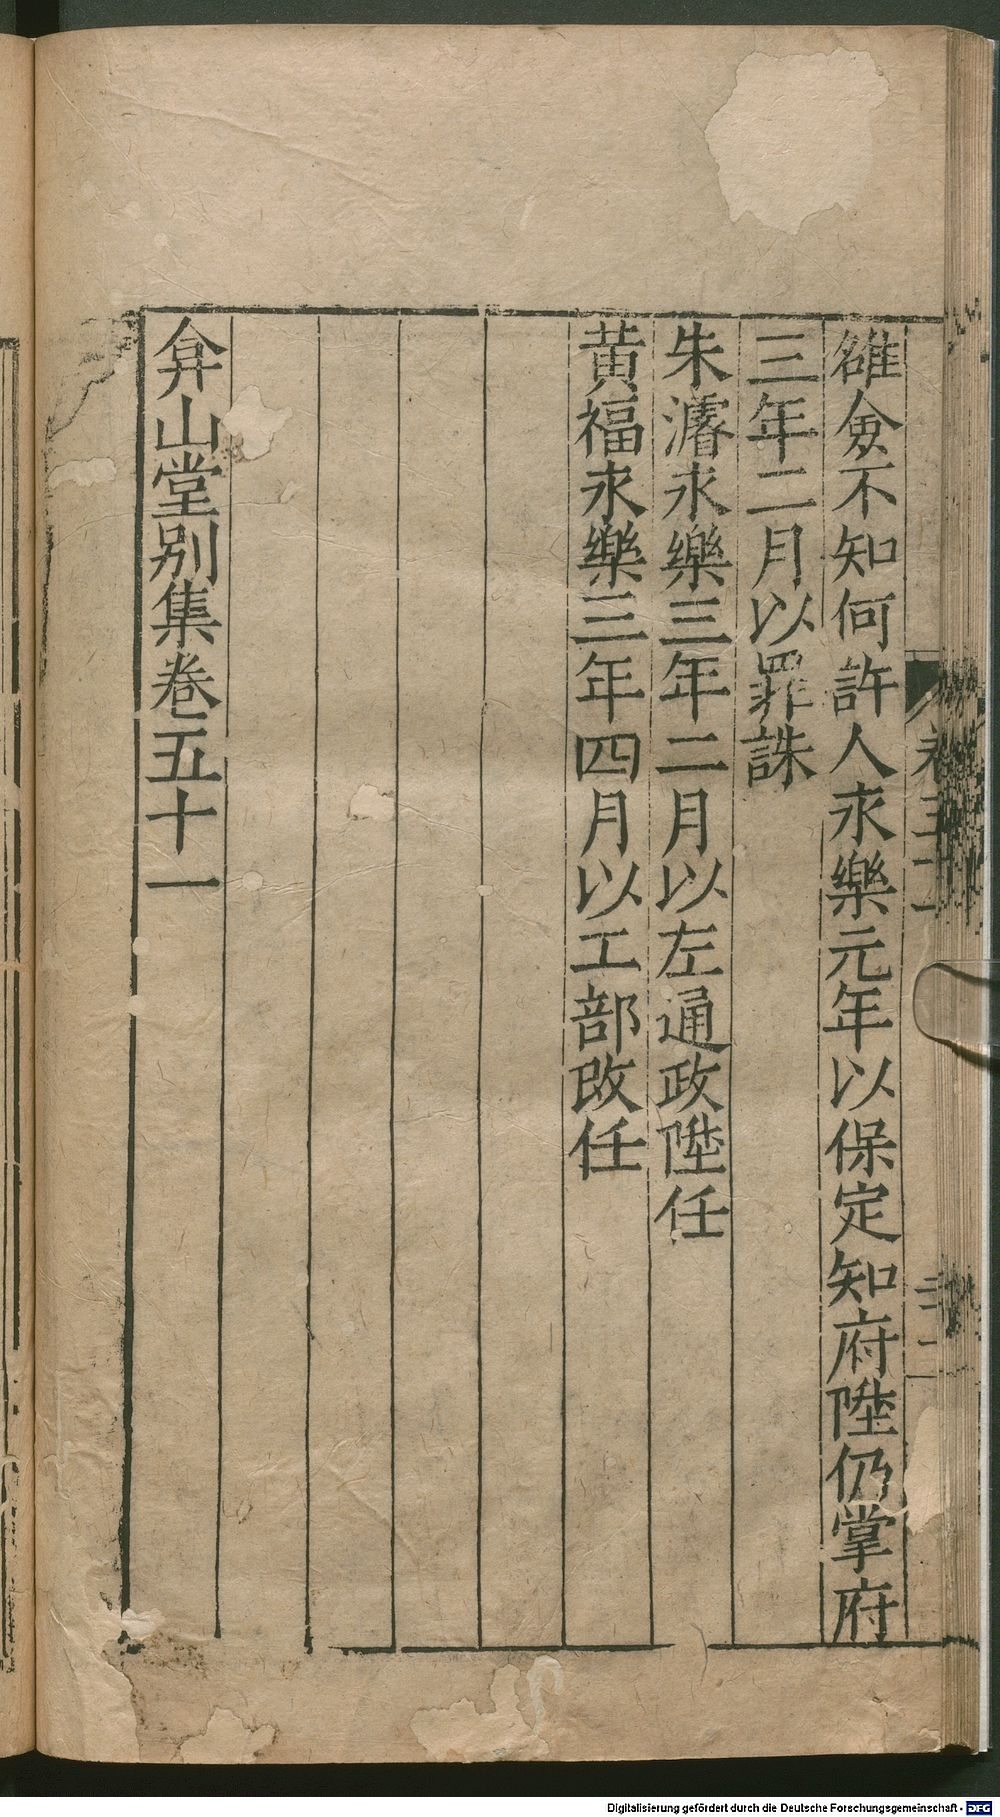 雒僉不知何許人永樂元年以保定知府陞仍掌府
三年二月以罪誅
朱濬永樂三年二月以左通政陞任
黃福永樂三年四月以工部改任
弇山堂別集卷五十一
Digitalisierung gefördert durch die Deutsche Forschungsgemeinschaft - DFG